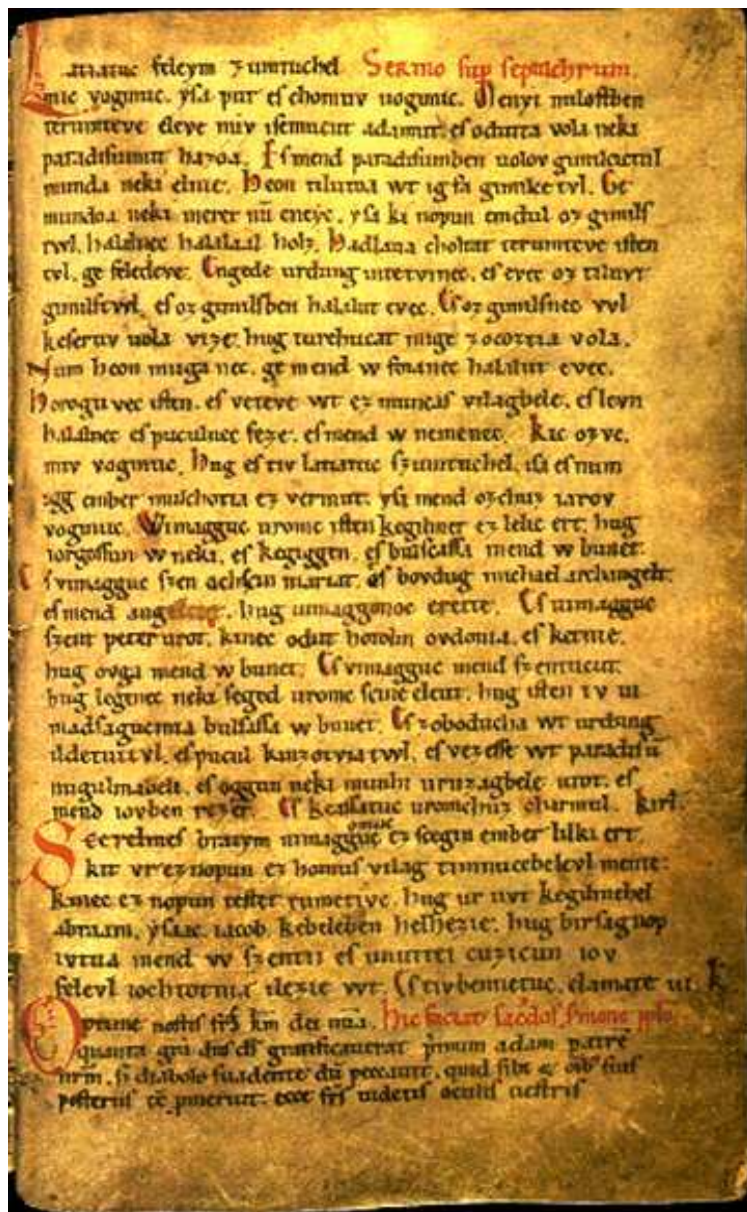 Latiatuc feleym zumtuchel Sermo sup sepulchrum.
mic vogmuc. ysa pur es chomuv uogmuc. Menyi milostben
terumteve eleve miv isemucut adamut. es odutta vola neki
paradisumut hazoa. Es mend paradisumben uolov gimilcictul
munda neki elnie. Heon tilutoa wt ig fa gimilce tvl. Ge
mundoa neki meret nū eneyc. ysa ki nopun emdul oz gimils
twl. halalnec halalaal holz. Hadlaua choltat terumteve isten
tvl. ge feledeve. Engede urdung intetvinec. es evec oz tiluvt
gimilstwl. es oz gimilsben halalut evec. Es oz gimilsnec vvl
keseruv uola vize. hug turchucat mige zocoztia vola.
Num heon muga nec. ge mend w foianec halalut evec.
Horogu vec isten. es veteve wt ez muncas vilagbele. es levn
halalnec es puculnec feze. es mend w nemenec. Kic ozvc.
miv vogmuc. Hug es tiv latiatuc szumtuchel. isa es num
igg ember mulchotia ez vermut. ysa mend ozchuz iarov
vogmuc. Wimagguc uromc isten kegilmet ez lelic ert. hug
iorgossun w neki. es kegiggen. es bulsassa mend w bunet.
Es vimagguc szen achscin mariat. es bovdug michael archangelt.
es mend angelcut. hug uimaggonoc erette. Es uimagguc
szent peter urot. kinec odut hotolm ovdonia. es ketnie.
hug ovga mend w bunet. Es vimagguc mend szentucut.
hug legenec neki seged uromc scine eleut. hug isten iv ui
madsagucmia bulsassa w bunet. Es zoboducha wt urdung
ildetuitvl. es pucul kinzotviatwl. es vezesse wt paradisū
nugulmabeli. es oggun neki munhi uruzagbele utot. es
mend iovben rezet. Es keassatuc uromchuz charmul. kirl.
Scerelmes bratym uimagguc omuc ez scegin ember lilki ert.
kit vr ez nopun ez homus vilag timnucebelevl mente.
kinec ez nopun testet tumetivc. hug ur uvt kegilmehel
abraam. ysaac. iacob. kebeleben helhezie. hug birsagnop
ivtua mend w szentii es unuttei cuzicun iov
felevl iochtotnia ilezie wt. Es tiv bennetuc. clamate iii. K